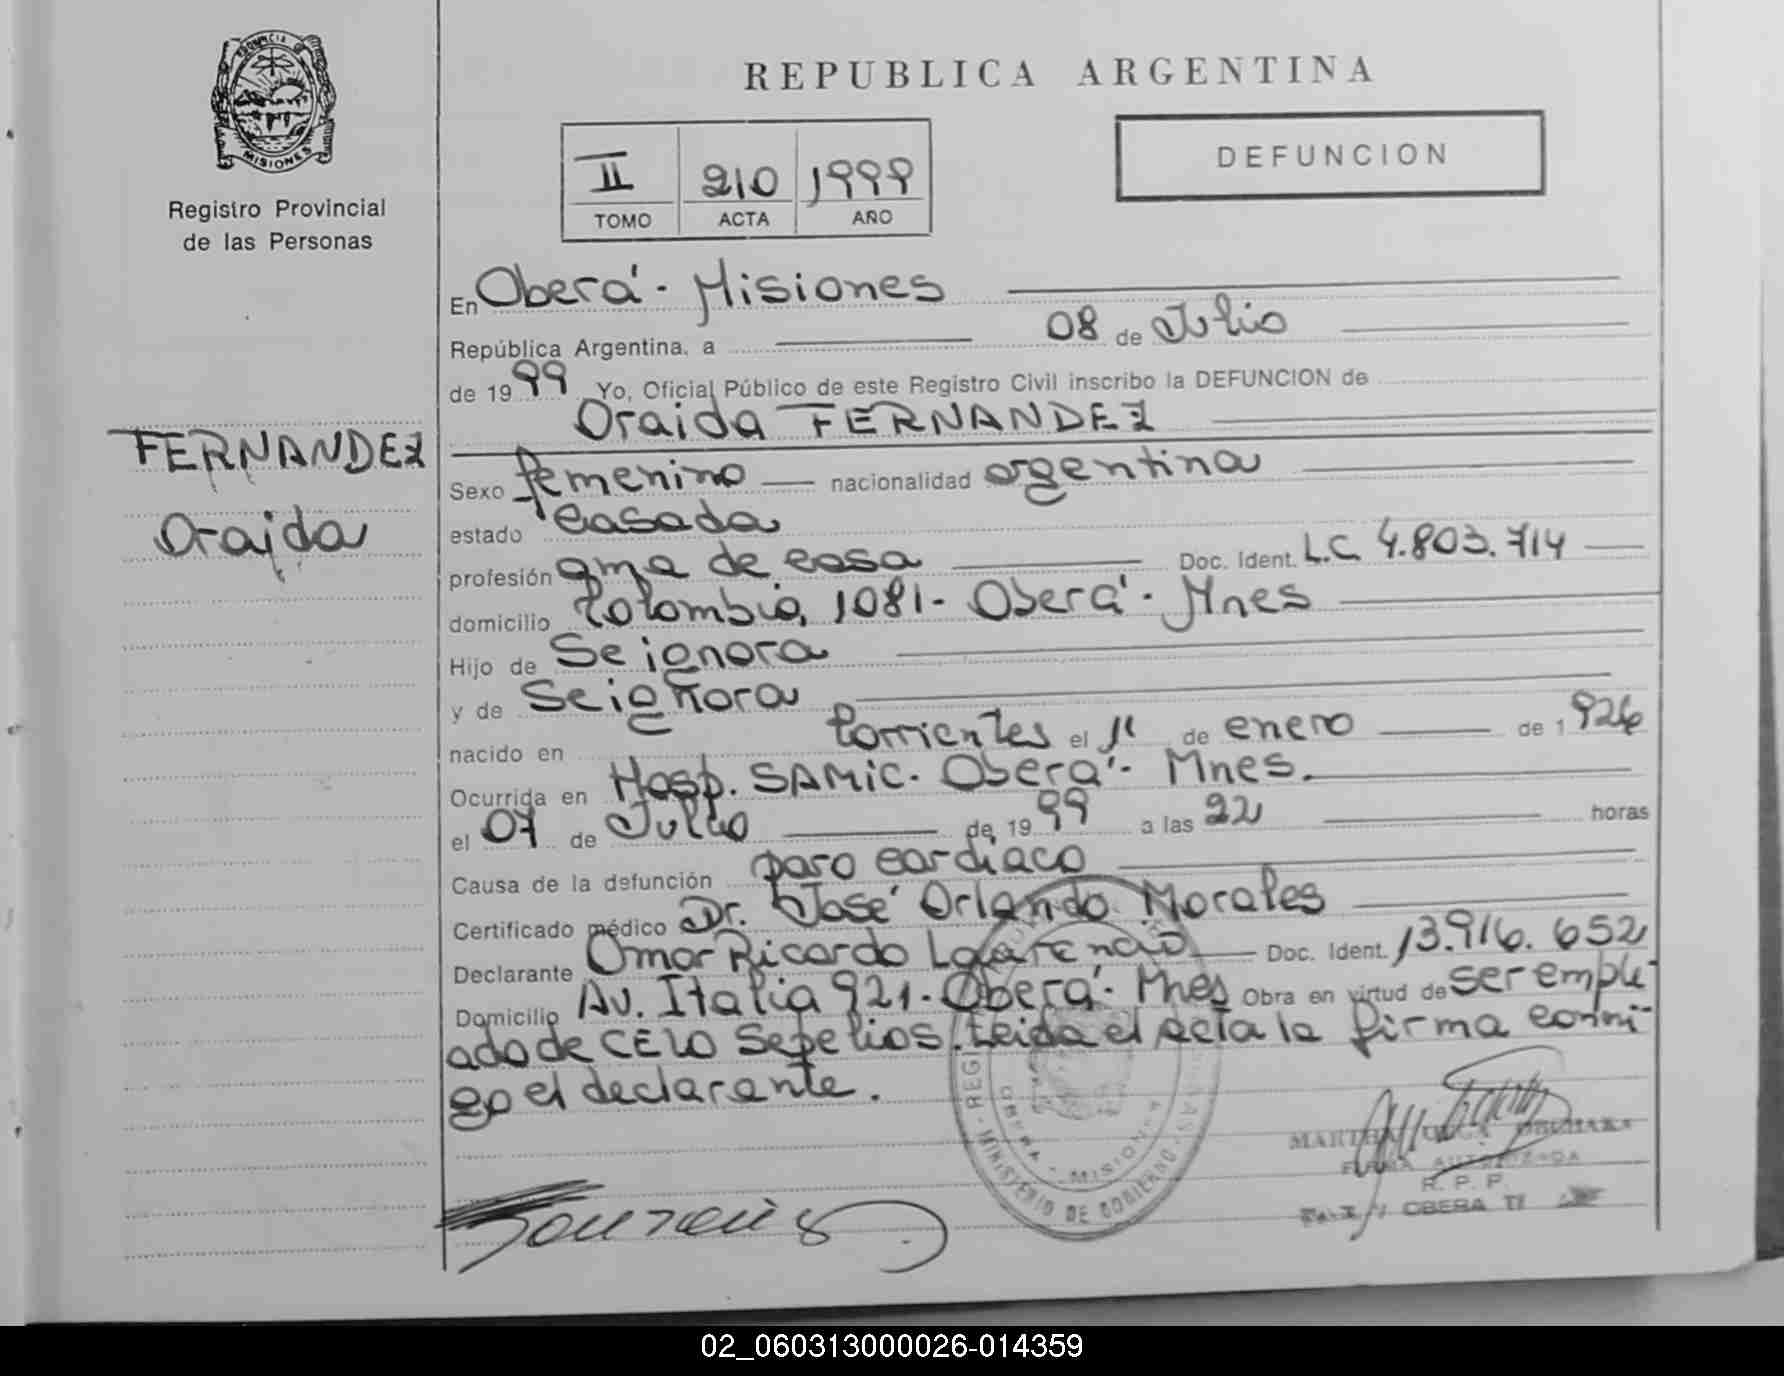 PROVINCIA DE
MISIONES
Registro Provincial
de las Personas
FERNANDEZ
Oraida
REPUBLICA ARGENTINA
II 210 1999
TOMO ACTA AÑO
DEFUNCION
En Oberá - Misiones
República Argentina, a 08 de Julio
de 1999 Yo, Oficial Público de este Registro Civil inscribo la DEFUNCION de
Oraida FERNANDEZ
Sexo femenino nacionalidad argentina
estado casada
profesión ama de casa Doc. Ident. L.C. 4.803.714
domicilio Colombia, 1081 - Oberá - Mnes
Hijo de Se ignora
y de Se ignora
nacido en Corrientes el 1º de enero de 1926
Ocurrida en Hosp. SAMIC. Oberá - Mnes.
el 07 de Julio de 1999 a las 22 horas
Causa de la defunción paro cardiaco
Certificado médico Dr. José Orlando Morales
Declarante Omar Ricardo Doc. Ident. 13.916.652
Domicilio Av. Italia 921 - Oberá - Mnes Obra en virtud de ser emple-
ado de CELO Sepelios. Leida el acta la firma conmi-
go el declarante.
MINISTERIO DE GOBIERNO
OBERA - MISIONES
MARTHA OLGA
FIRMA AUTORIZADA
R. P. P.
OBERA
02_060313000026-014359